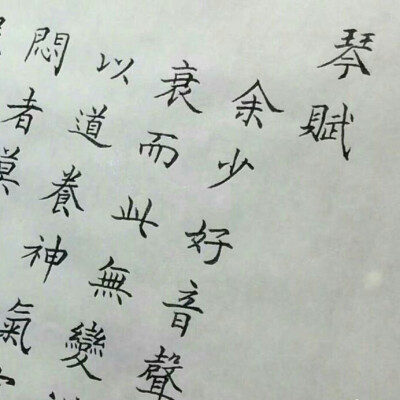 琴賦
余少好音聲
衰而此無變
以道養神氣
悶者莫